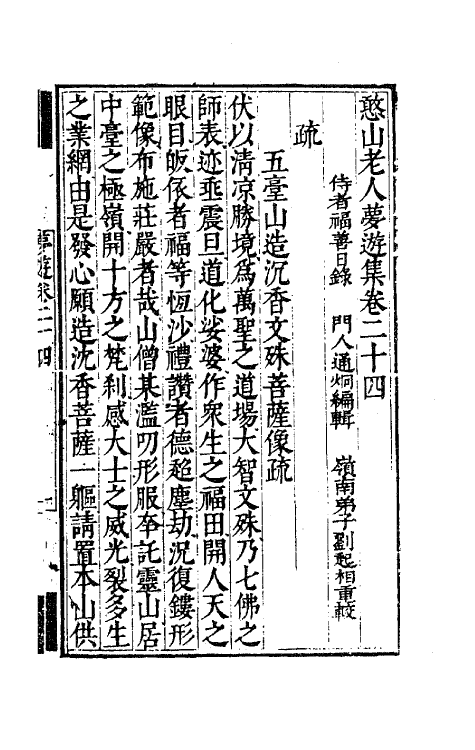 憨山老人夢遊集卷二十四
侍者福善日錄　門人通炯編輯　嶺南弟子劉起相重較
疏
五臺山造沉香文殊菩薩像疏
伏以清凉勝境為萬聖之道場大智文殊乃七佛之
師表迹垂震旦道化娑婆作衆生之福田開人天之
眼目皈依者福等恆沙禮讚者德超塵劫況復鏤形
範像布施莊嚴者哉山僧某濫叨形服夲託靈山居
中臺之極嶺開十方之梵刹感大士之威光裂多生
之業網由是發心願造沈香菩薩一軀請置本山供
夢遊卷二十四
一